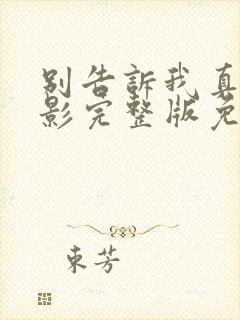 别告訴我真
影完整版免
東芳